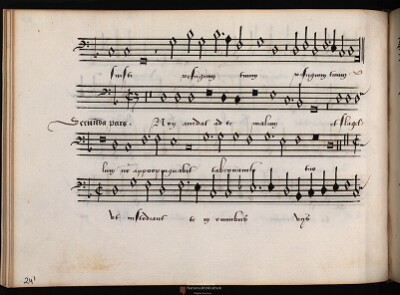 fuisti refugium tuum refugium tuum
Secunda pars. Non accedat ad te malum et flagel-
lum non appropinquabit tabernaculo tuo
Ut custodiant te in omnibus viis
241